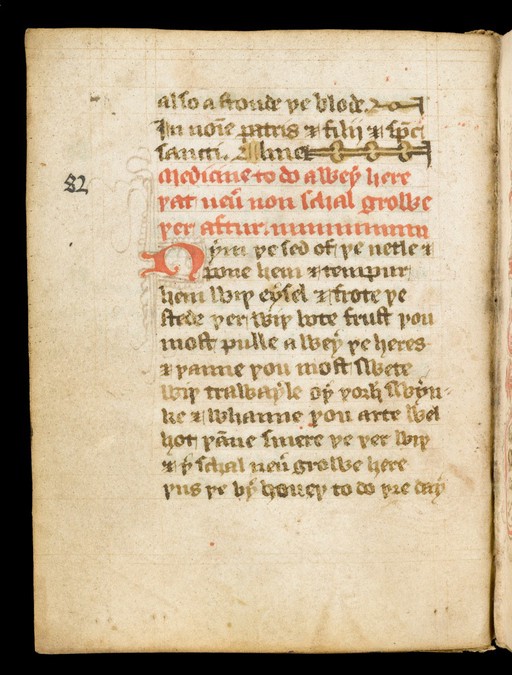 also a stonde ye blode
In noīe patris & filij & spc̄
sancti. Amen
82
Medicine to do awey here
yat neu̾ non schal growe
yer aftur.
Nym ye sed of ye netle &
hem & tempur
hem wiy eysel & frote ye
stede yer wiy bote frust you
most pulle a wey ye heres
& yanne you most swete
wiy trawayle oy
ke & whanne you arte wel
hot yāne smere ye yer wiy
& y̾ schal neu̾ growe here
yus ye by houey to do yre day